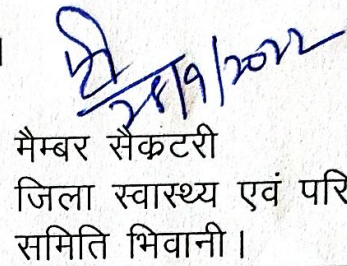 28/9/2022
मैम्बर सैकटरी
जिला स्वास्थ्य एवं परि
समिति भिवानी।